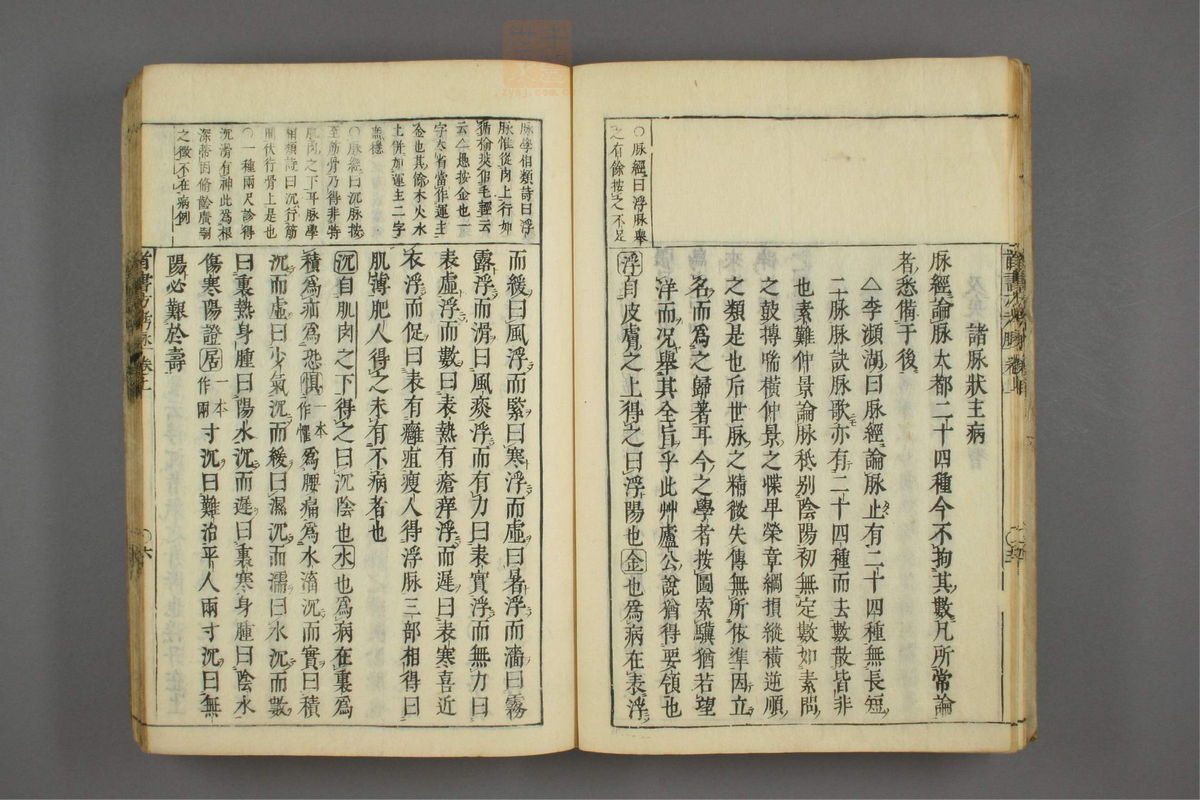 諸脉狀主病
脉經論脉大都二十四種今不拘其數凡所常論
者悉備于後
△李瀕湖曰脉經論脉止有二十四種無長短
二脉脉訣脉歌亦有二十四種而去數散皆非
也素難仲景論脉秪别陰陽初無定數如素問
之鼓摶喘橫仲景之惵卑榮章綱損縱橫逆順
之類是也后世脉之精微失傳無所依準因立
名而爲之歸著耳今之學者按圖索驥猶若望
洋而况舉其全旨乎此艸廬公說猶得要領也
浮自皮膚之上得之曰浮陽也金也爲病在表浮
○脉經曰浮脉舉
之有餘按之不足
而緩曰風浮而緊曰寒浮而虛曰暑浮而濇曰霧
露浮而滑曰風痰浮而有力曰表實浮而無力曰
表虛浮而數曰表熱有瘡痒浮而遲曰表寒喜近
衣浮而促曰表有癰疽瘦人得浮脉三部相得曰
肌薄肥人得之未有不病者也
沉自肌肉之下得之曰沉陰也水也爲病在裏爲
積爲疝爲恐惧一本作懼爲腰痛爲水濇沉而實曰積
沉而虛曰少氣沉而緩曰濕沉而濡曰水沉而數
曰裏熱身腫曰陽水沉而遲曰裏寒身腫曰陰水
傷寒陽證居一本作兩寸沉曰難治平人兩寸沉曰無
陽必艱於壽
脉學伯類詩曰浮
脉惟從肉上行如
猶榆莢似毛輕云
云△愚按金也一
字本省當作運主
金也其餘木火水
土併加運主二字
○脉經曰沉脉按
至筋骨乃得非特
肌肉之下耳脉學
相類詩曰沉行筋
間伏行骨上是也
○一種兩尺診得
沉滑有神此爲根
之徵不在病例